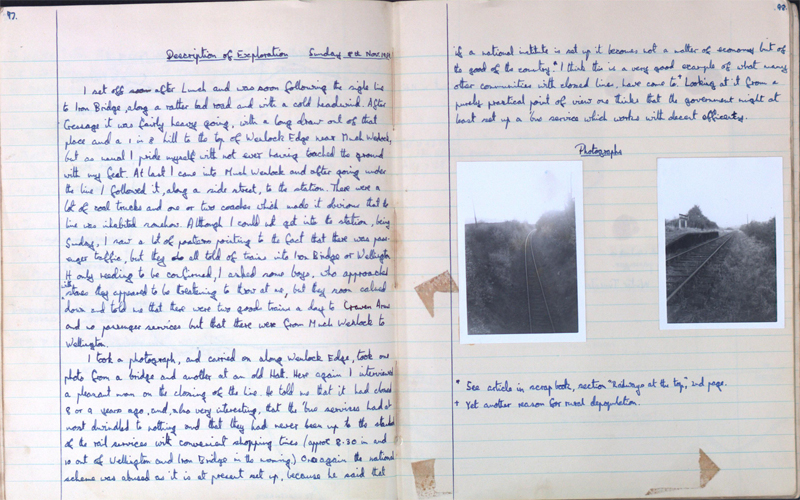 97.
Description of Exploration Sunday 8th Nov.
I set off soon after lunch and was soon following the single line
to Iron Bridge, along a rather bad road and with a cold headwind. After
Cressage it was fairly heavy going, with a long draw out of that
place and a 1 in 8 hill to the top of Wenlock Edge near Much Wenlock,
but as usual I pride myself with not ever having touched the ground
with my feet. At last I came into Much Wenlock and after going under
the line I followed it, along a side street, to the station. There were a
lot of coal trucks and one or two coaches which made it obvious that the
line was inhabited somehow. Although I could not get into the station, being
Sunday, I saw a lot of posters pointing to the fact that there was pass-
enger traffic, but they all told of trains into Iron Bridge or Wellington
It only needing to be confirmed, I asked some boys, who approached
with
stones they appeared to be threatening to throw at me, but they soon calmed
down and told me that there were two goods trains a day to Craven Arms
and no passenger services but that there were from Much Wenlock to
Wellington.
I took a photograph, and carried on along Wenlock Edge, took one
photo from a bridge and another at an old Halt. Here again I interviewed
a pleasant man on the closing of the line. He told me that it had closed
8 or 9 years ago, and, also very interesting, that the 'bus services had al-
most dwindled to nothing and that they had never been up to the standard
of the rail services with convenient shopping times (approx 8.30 in and
10 out of Wellington and Iron Bridge in the morning.) Once again the national
scheme was abused as it is at present set up, because he said that
98.
if a national institute is set up it becomes not a matter of economy but of
the good of the country.* I think this is a very good example of what many
other communities with closed lines have come to.† Looking at it from a
purely practical point of view one thinks that the government might at
least set up a 'bus service which works with decent efficiency.
Photographs
* See article in scrapbook, section "Railways at the top", 2nd page.
† Yet another reason for rural depopulation.